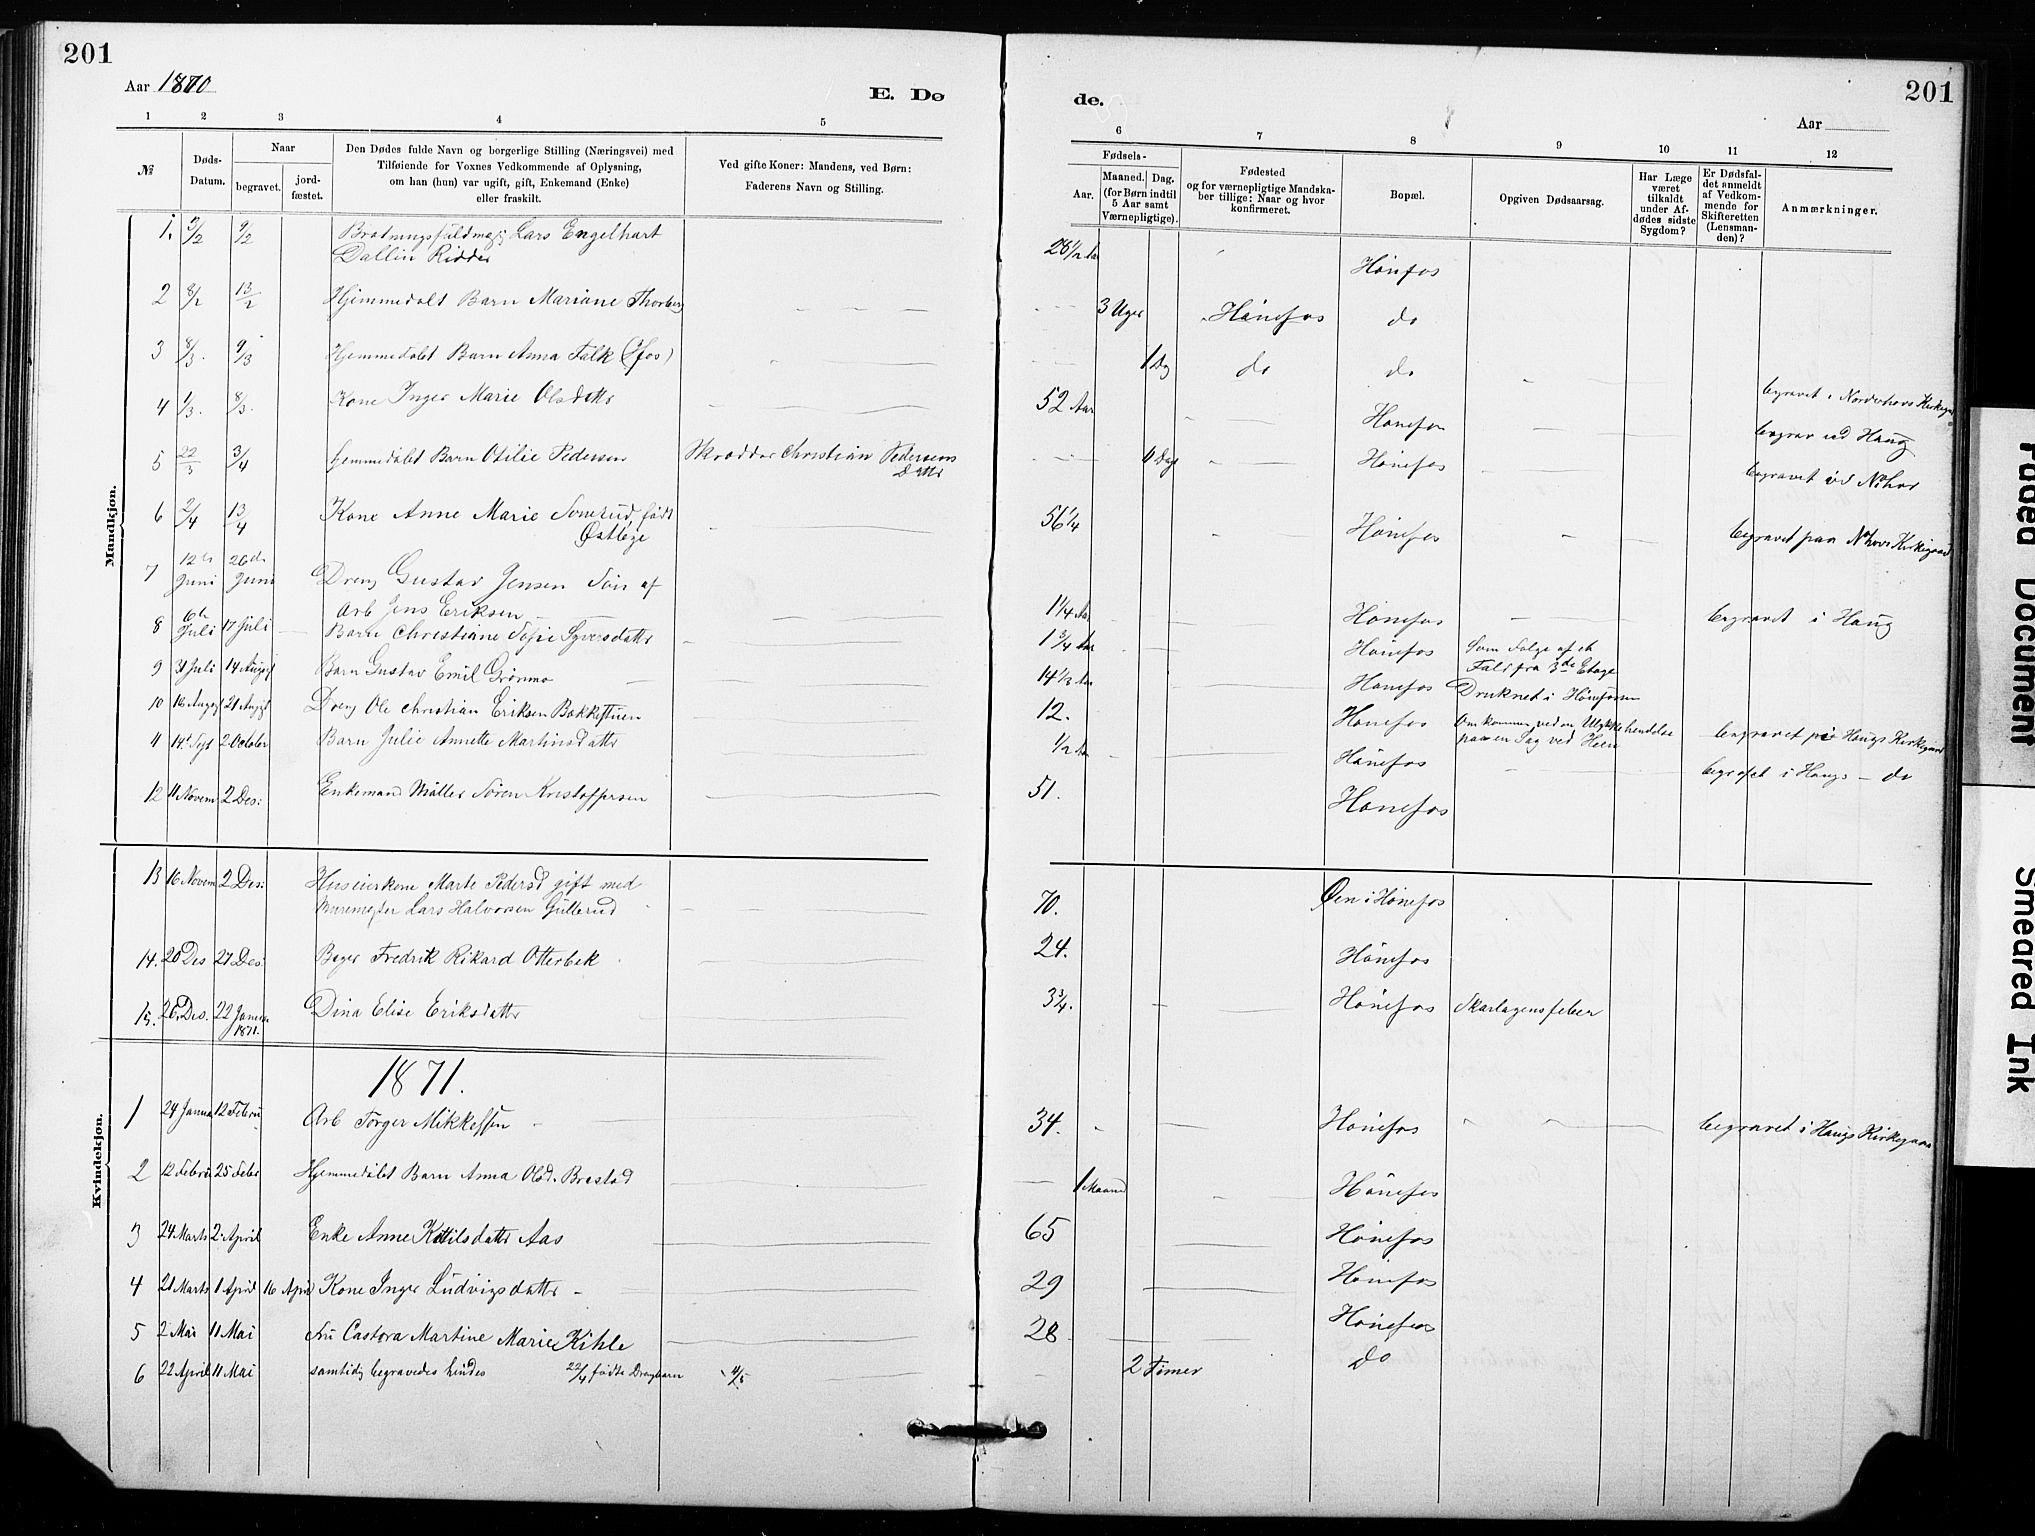 201
201
Aar 1870
E. Dø
de.
Aar
1 2 3 4 5
6 7 8 9 10 11 12
№
Døds-
Datum.
Naar
begravet.
jord-
fæstet.
Den Dødes fulde Navn og borgerlige Stilling (Næringsvei) med
Tilføiende for Voxnes Vedkommende af Oplysning,
om han (hun) var ugift, gift, Enkemand (Enke)
eller fraskilt.
Ved gifte Koner: Mandens, ved Børn:
Faderens Navn og Stilling.
Fødsels-
Aar.
Maaned.
Dag.
(for Børn indtil
5 Aar samt
Værnepligtige).
Fødested
og for værnepligtige Mandska-
ber tillige: Naar og hvor
konfirmeret.
Bopæl.
Opgiven Dødsaarsag.
Har Læge
været
tilkaldt
under Af-
dødes sidste
Sygdom?
Er Dødsfal-
det anmeldt
af Vedkom-
mende for
Skifteretten
(Lensman-
den)?
Anmærkninger.
Mandkjøn.
1. 9/2 Lars Engelhart
Dallin Ridder 28 1/2 Aar Hønefos
2 8/2 13/2 Hjemmedøbt Barn Mariane Thorberg 3 Uger Hønefos do
3 8/3. 9/3 Hjemmedøbt Barn Anna Falk (Hfos) 1 Dag do do
4 1/3. 8/3. Kone Inger Marie Olsdatter 52 Aar Hønefos begravet i Norderhovs Kirkegd
begrav ved Haug
5 22/3 3/4 Hjemmedøbt Barn Otilie Pedersen Skrædder Christian Pedersens
Datter Hønefos begravet ved N.hov
6 2/4 13/4 Kone Anne Marie Somerud, født
56 1/4 Hønefos begravet paa N.hovs Kirkegaard
7 12te Juni 26de Juni Dreng Gustav Jensen Søn af
Arb Jens Eriksen 1 1/4 Aar Hønefos begravet i Haug
8 6te Juli 17 Juli Barn Christiane Sofie Syversdatter 1 3/4 Aar Hønefos Som Følge af et
Fald fra 3de Etage
9 31 Juli 14 August Barn Gustav Emil Grønmo Hønefos Druknet i Hønefossen
10 16 August 21 August Dreng Ole Christian Eriksen Bakkestuen 12. Hønefos Omkommen ved en Ulykkehendelse
paa en Sag ved Heen begravet paa Haugs Kirkegaard
11 14 Sept 2 October Barn Julie Annette Martinsdatter 1/2 Aar Hønefos begravet i Haugs - do
12 11 Novem 2 Des: Enkemand Møller Søren Kristoffersen 51. Hønefos
13 16 Novem 2 Des: Huseierkone Marte Pedersd gift med
Muremester Lars Halvorsen Gullerud 70. Øen i Hønefos
14. 20 Des 27 Des: Bager Fredrik Rikard Otterbek 24. Hønefos
15. 26. Des. 22 Januar
1871. Dina Elise Eriksdatter 3 3/4. Hønefos Skarlagensfeber
Kvindekjøn.
1871.
1 24 Janua 12 Febru Arb Torger Mikkelsen 34. Hønefos begravet i Haugs Kirkegaar
2 12 Febru 25 Febr Hjemmedøbt Barn Anna Olsd. Brestad 1 Maaned Hønefos
3 24 Marts 2 April Enke Anne Kittilsdatter Aas 65 Hønefos
4 21 Marts 1 April 16 April Kone Inger Ludvigsdatter 29 Hønefos
5 2 Mai 11 Mai Fru Castora Martine Marie Kihle 28 Hønefos
6 22 April 11 Mai samtidig begravedes hendes 22/4 fødte Drengbarn 4/5 2 Timer do
Faded Document
Smeared Ink